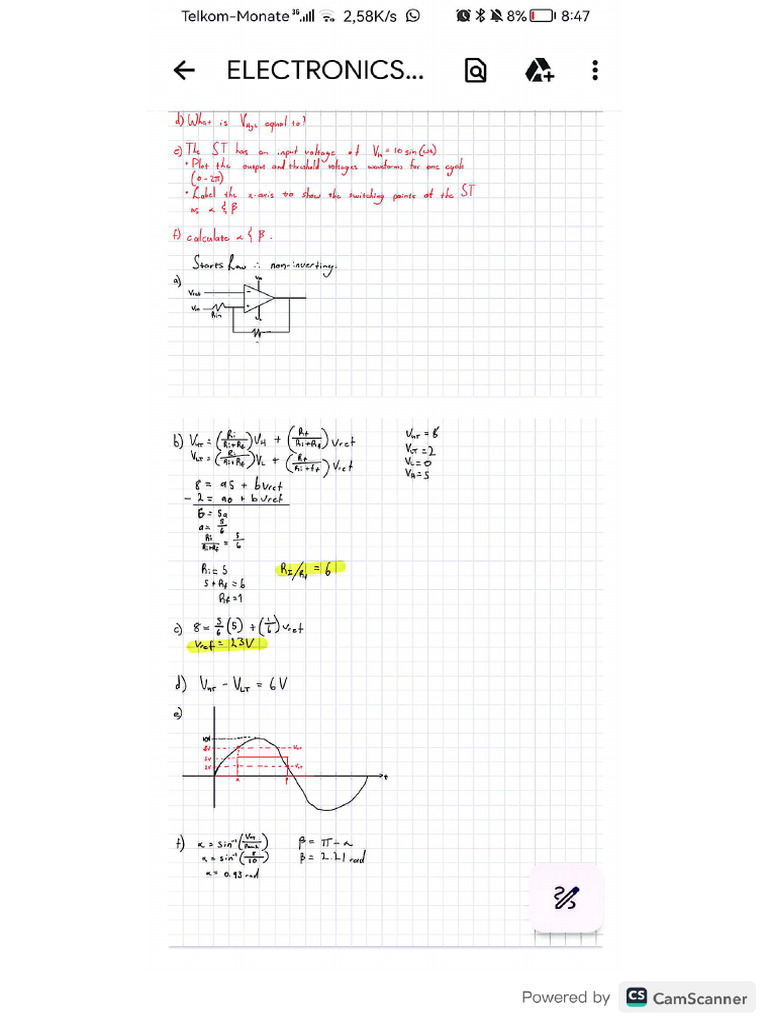 Telkom-Monate 3G 2,58K/s 8% 8:47
ELECTRONICS...
d) What is VHys equal to?
e) The ST has an input voltage of Vin = 10 sin(ωt)
• Plot the output and threshold voltages waveforms for one cycle
(0-2π)
• Label the x-axis to show the switching points of the ST
as α & β
f) calculate α & β.
Starts low ∴ non-inverting.
a)
Vref
Vin
Rin
b) VHT = (Ri/Ri+Rf)VH + (Rf/Ri+Rf)Vref
VLT = (Ri/Ri+Rf)VL + (Rf/Ri+Rf)Vref
VHT = 8
VLT = 2
VL = 0
VH = 5
8 = a5 + bVref
- 2 = a0 + bVref
6 = 5a
a = 5/6
Ri/Ri+Rf = 5/6
Ri = 5
5 + Rf = 6
Rf = 1
RI/Rf = 6
c) 8 = 5/6(5) + (1/6)Vref
Vref = 23V
d) VHT - VLT = 6V
e)
10V
8V
VHT
5V
2V
VLT
α
β
t
f) α = sin⁻¹(
α = sin⁻¹(8/10)
α = 0.93 rad
β = π - α
β = 2.21 rad
Powered by CS CamScanner